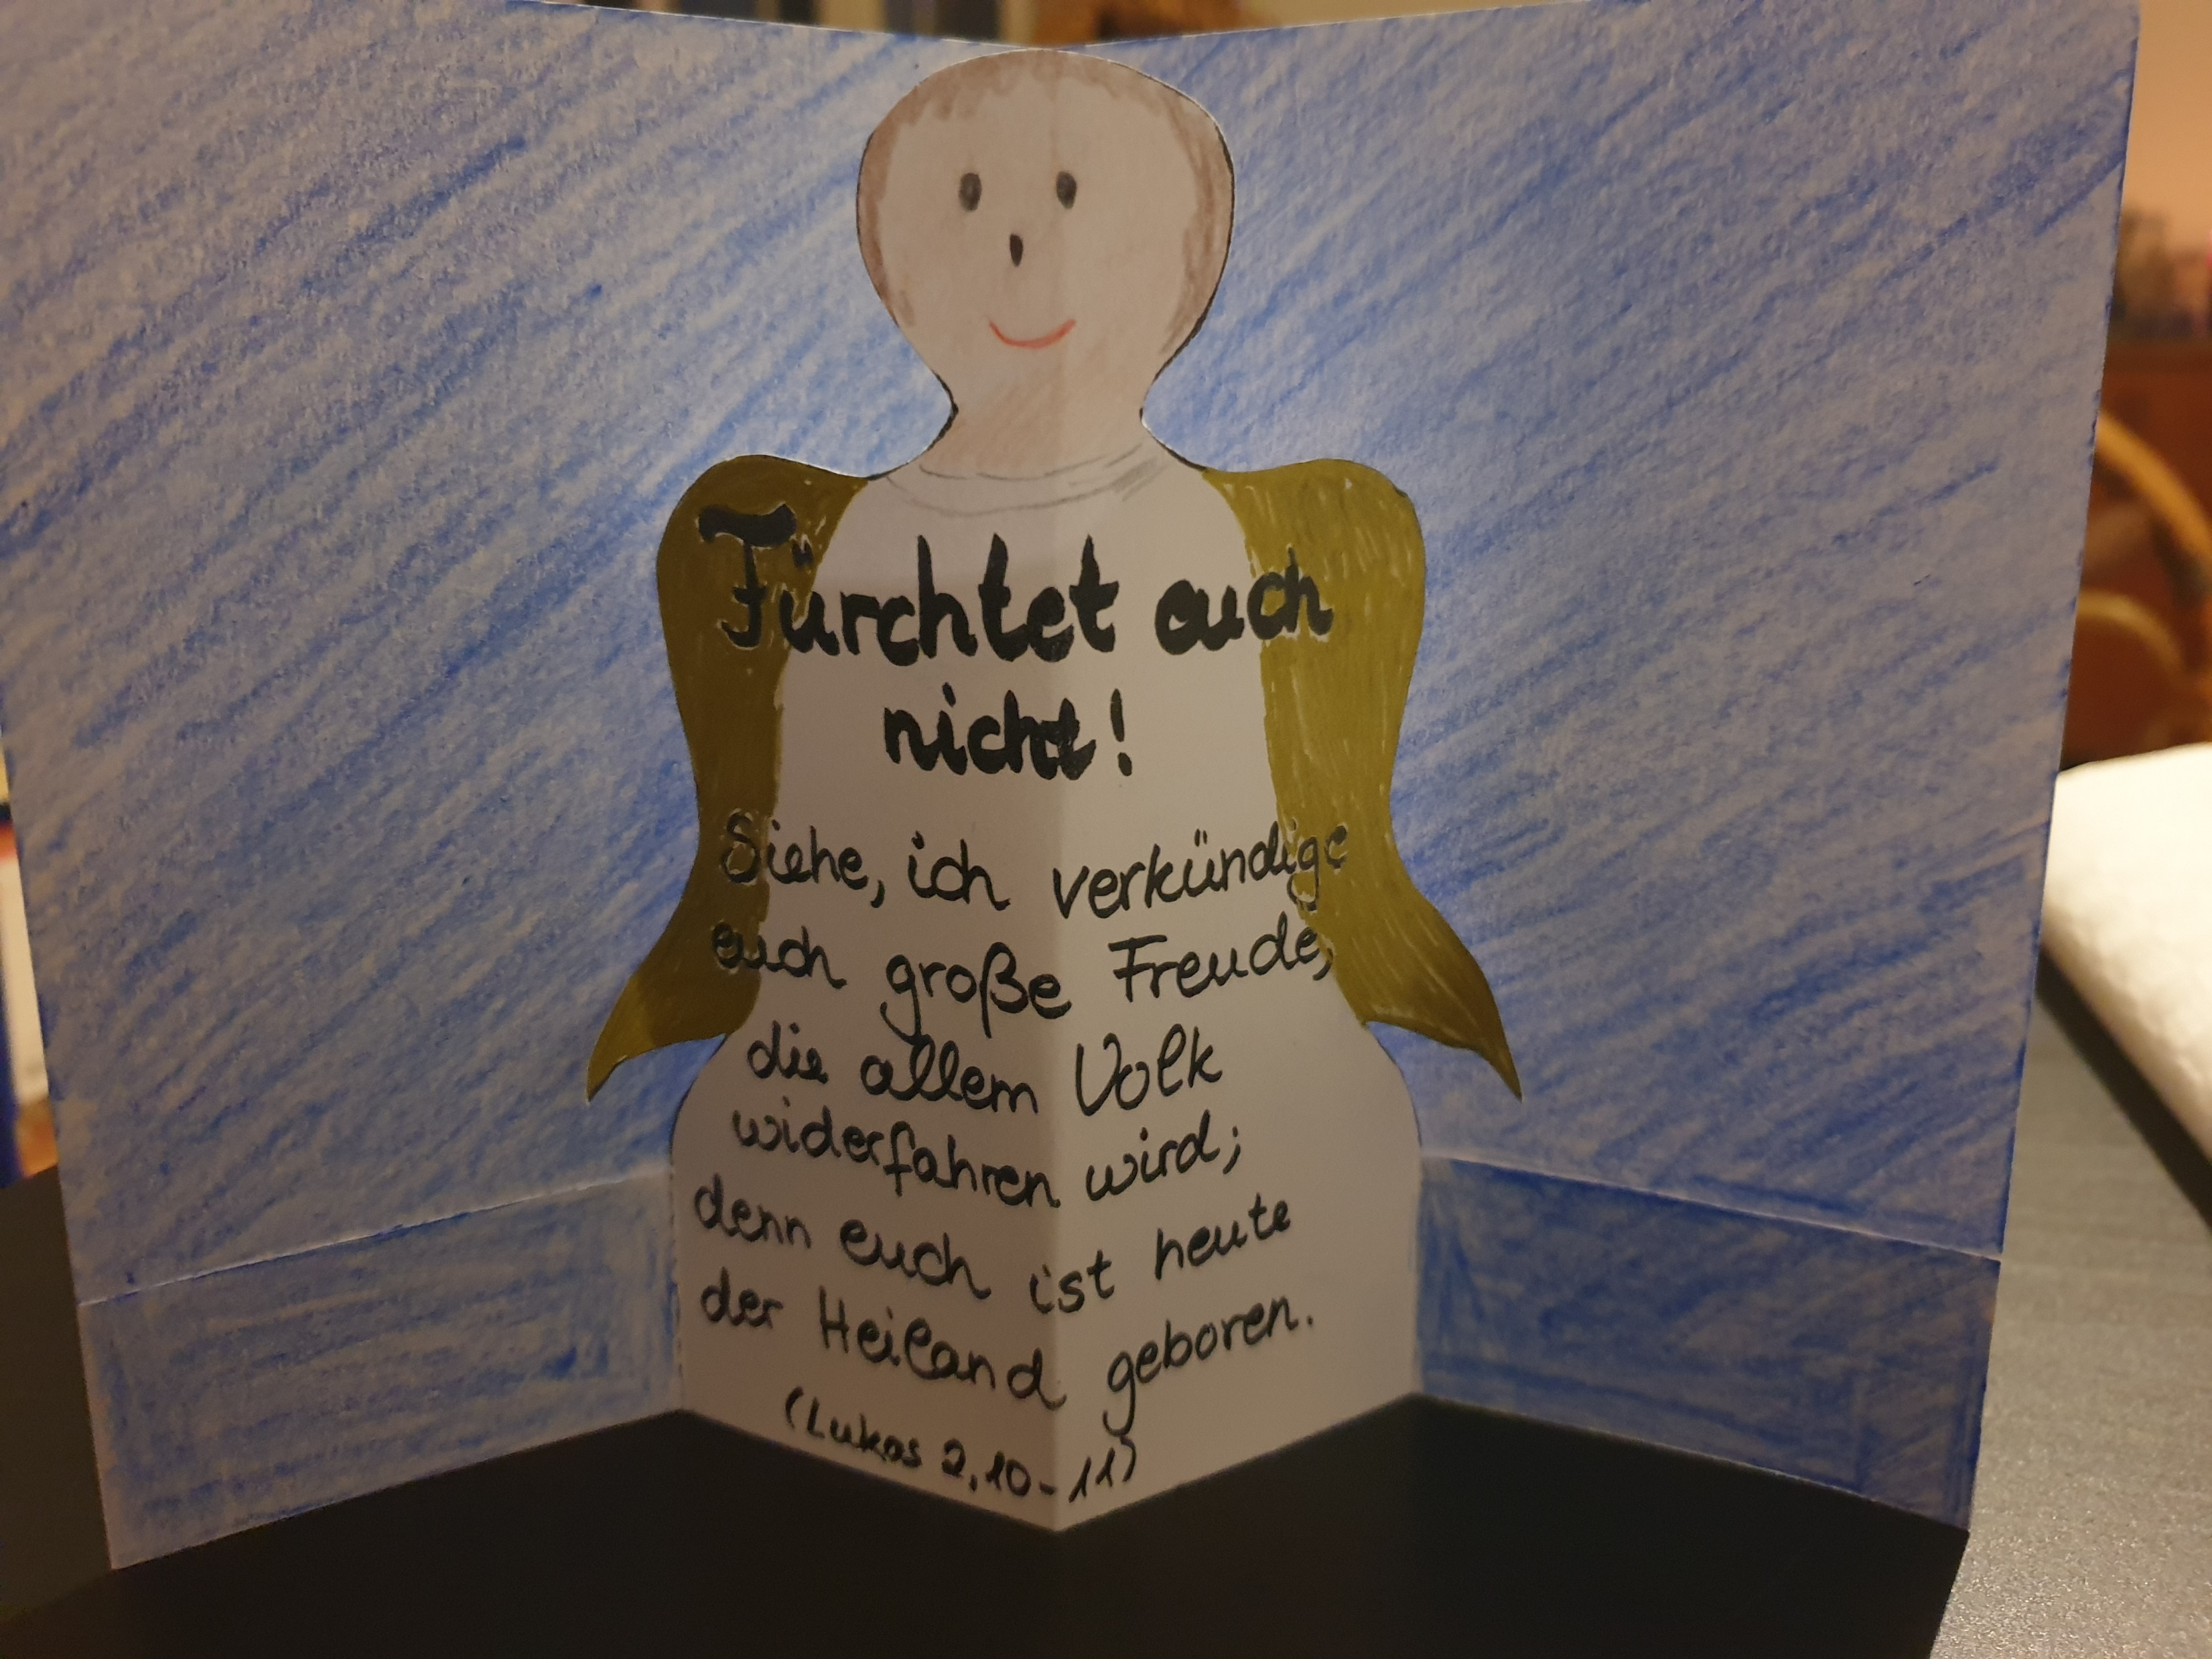 Fürchtet euch
nicht!
Siehe, ich verkündige
euch große Freude,
die allem Volk
widerfahren wird;
denn euch ist heute
der Heiland geboren.
(Lukas 2,10-11)